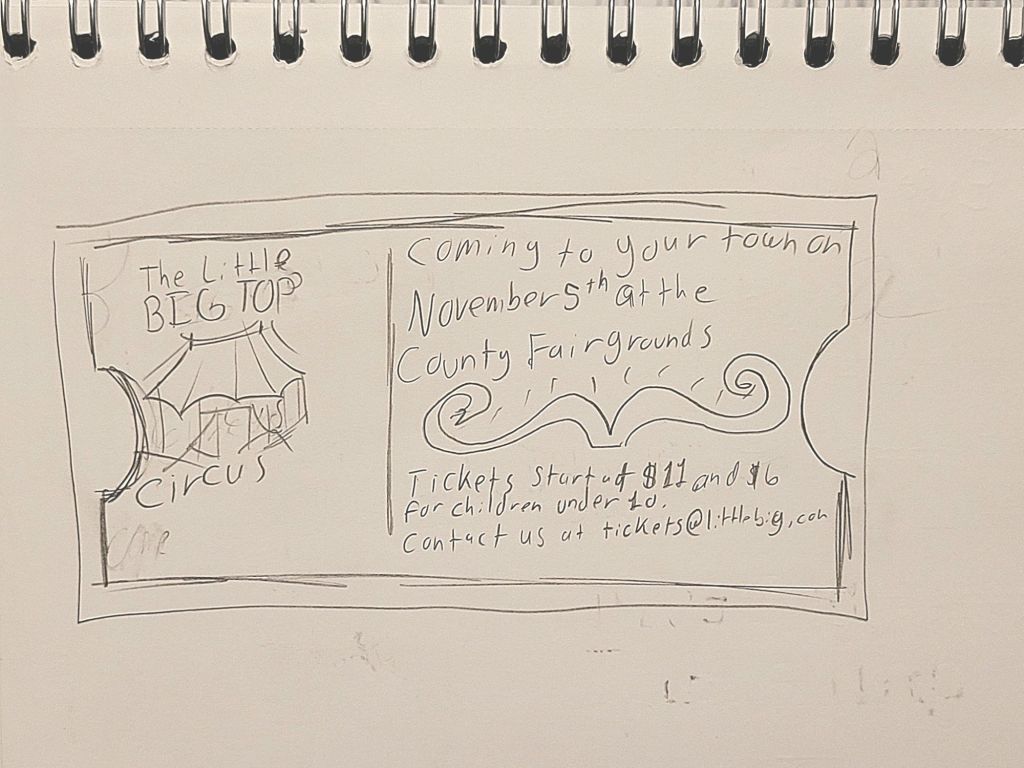 The Little
BIG TOP
Circus
Coming to your town on
November 5th at the
County Fairgrounds
Tickets start at $11 and $6
for children under 10.
Contact us at tickets@littlebig.com